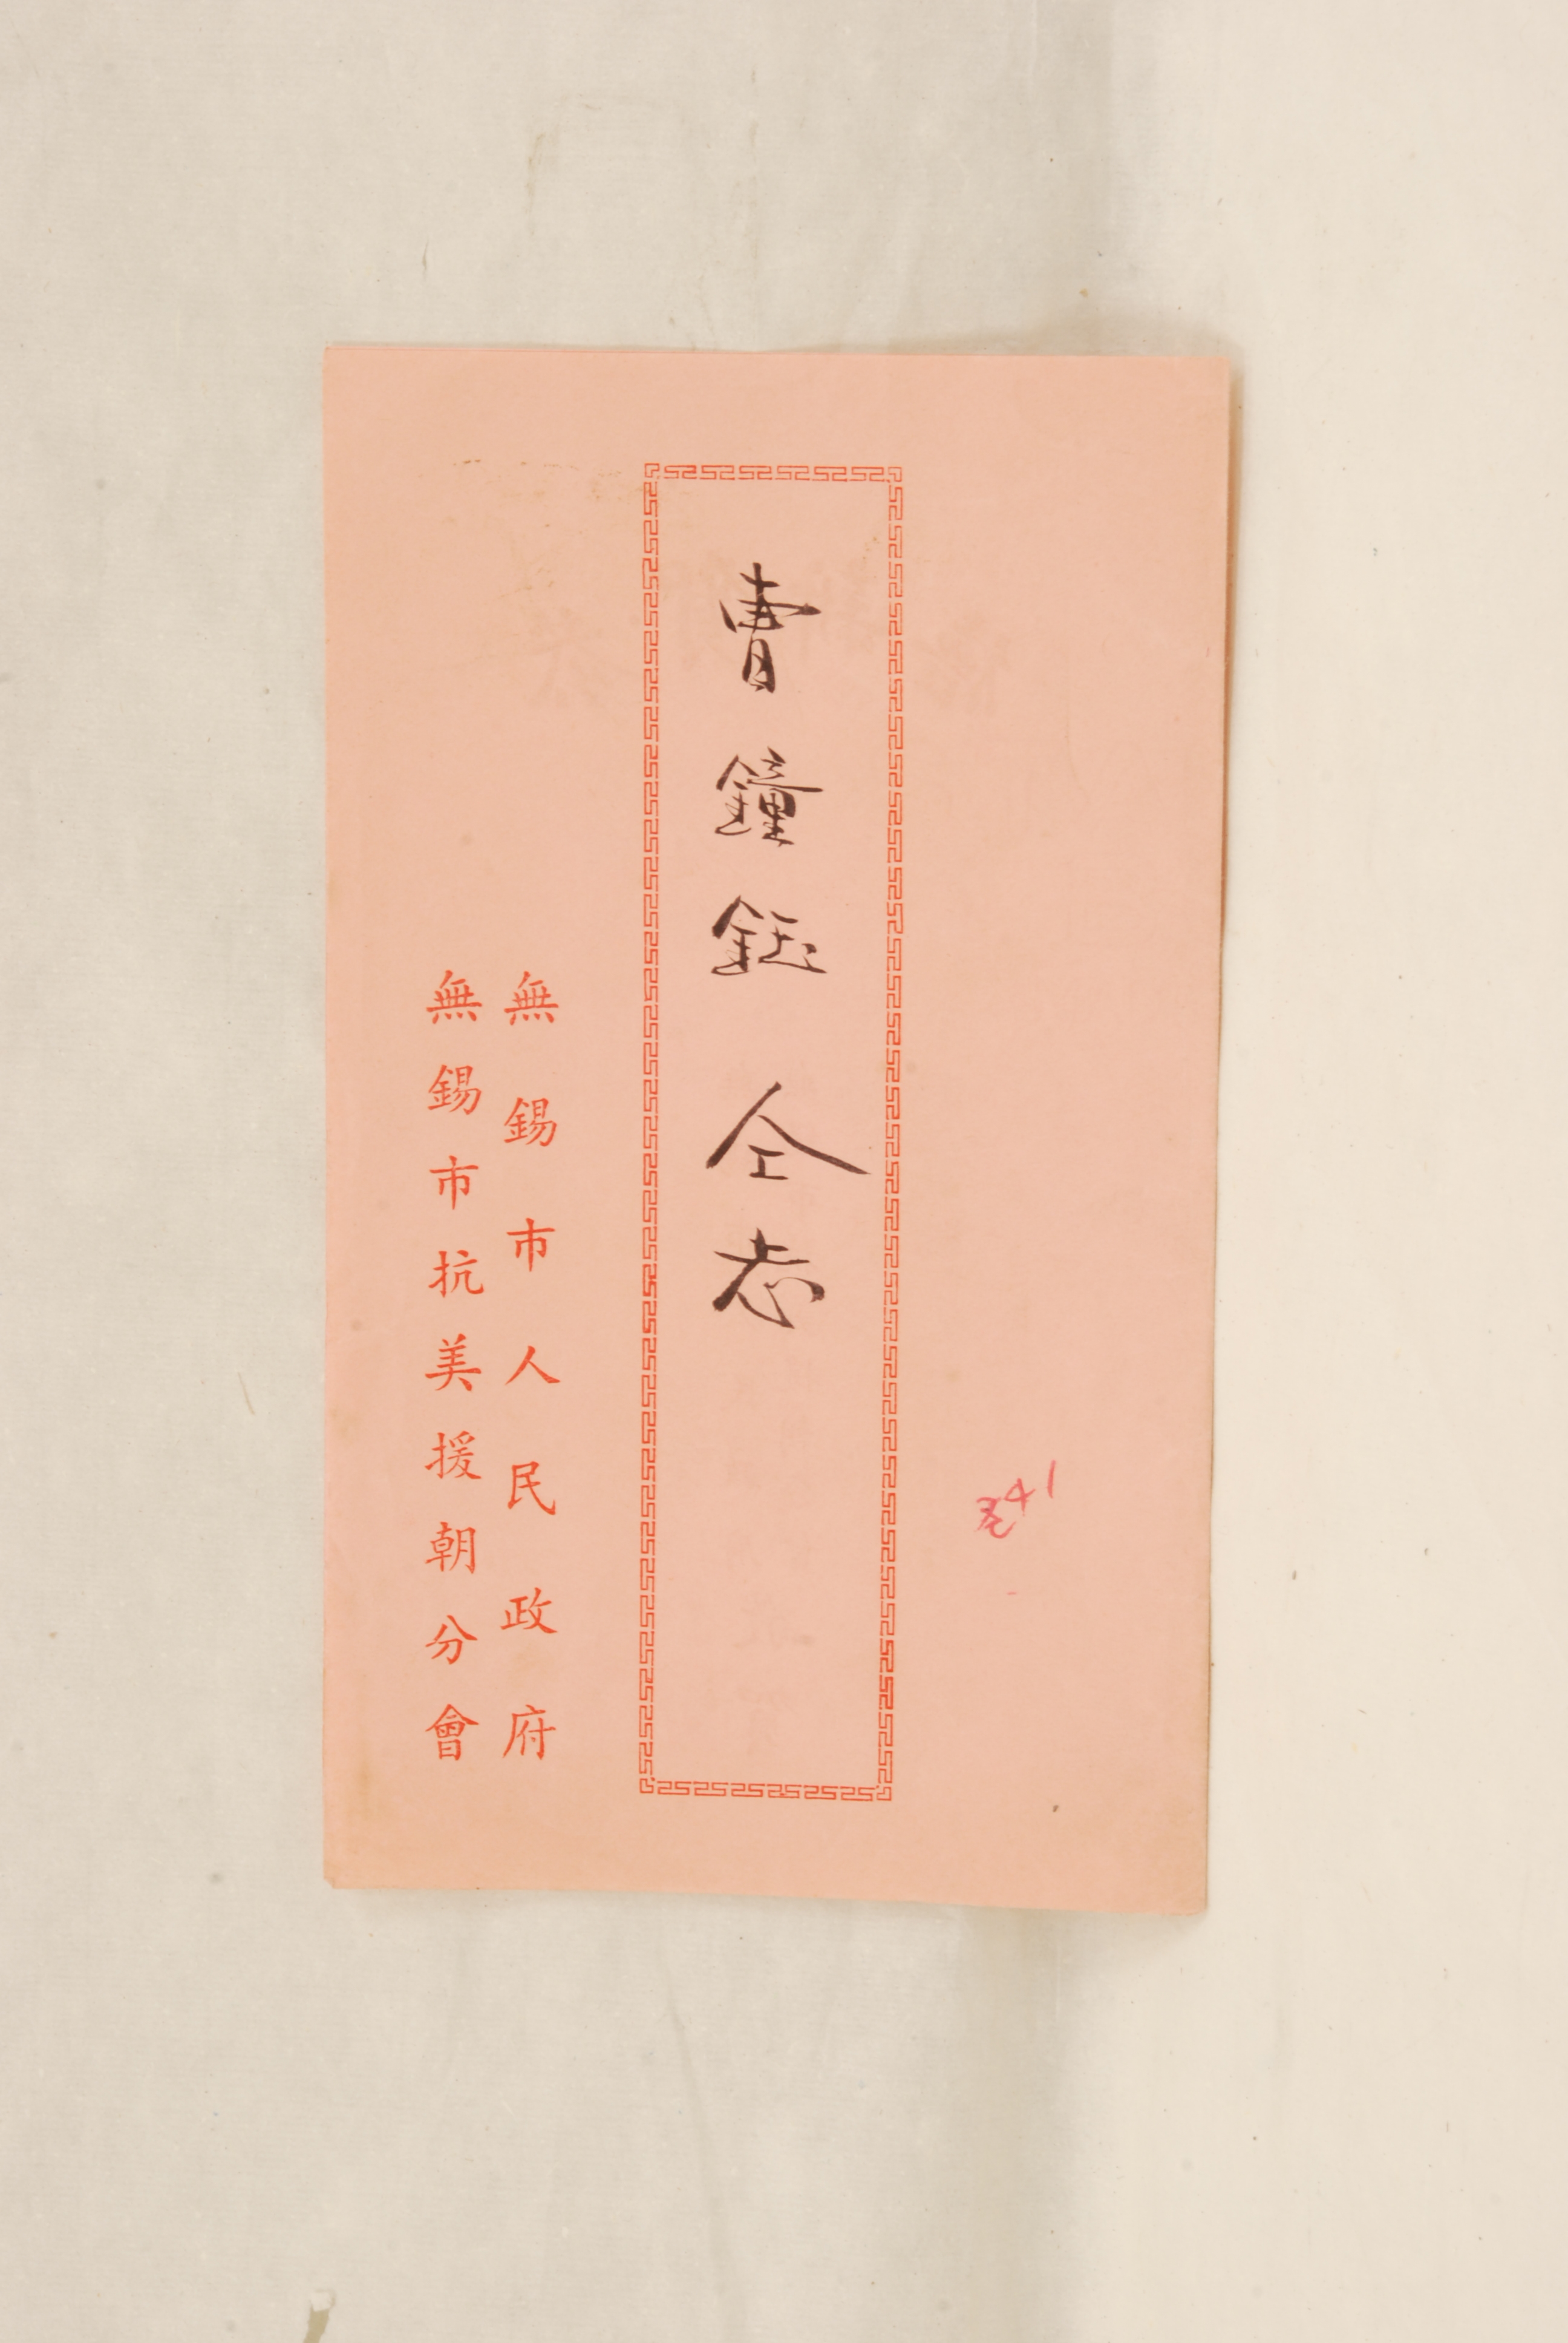 曹鐘鈺 仝志
無錫市人民政府
無錫市抗美援朝分會
41